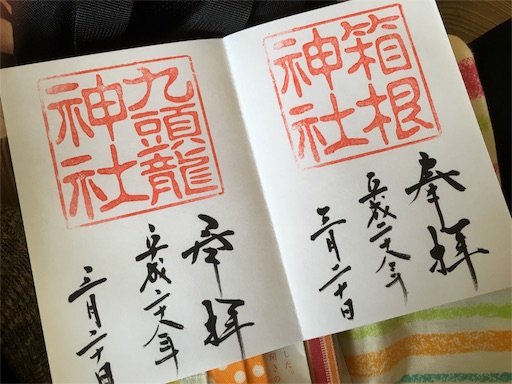 箱根
神社
奉拝
平成二十八年
三月二十日
九頭龍
神社
奉拝
平成二十八年
三月二十日
した。